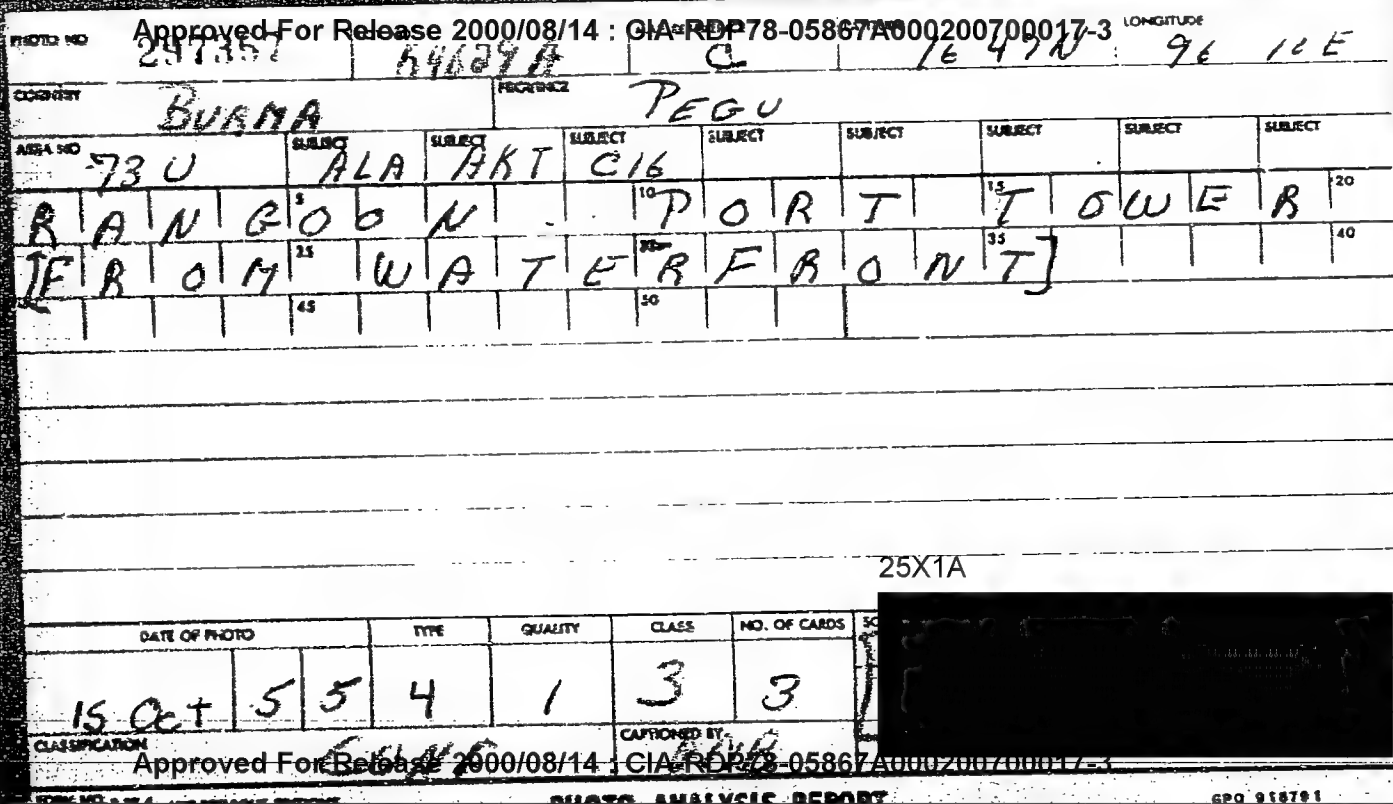 Approved For Release 2000/08/14 : CIA-RDP78-05867A000200700017-3
PHOTO NO 297357 54629A C 16 47N LONGITUDE 96 10 E
COUNTRY BURMA PROVINCE PEGU
AREA NO 73 U SUBJECT ALA SUBJECT AKT SUBJECT C16 SUBJECT SUBJECT SUBJECT SUBJECT SUBJECT
RANGOON 5 10 PORT 15 TOWER 20
[FROM 25 WATERFRONT] 35 40
45 50
25X1A
DATE OF PHOTO TYPE QUALITY CLASS NO. OF CARDS
15 Oct 55 4 1 3 3
CLASSIFICATION CAPTIONED BY
Approved For Release 2000/08/14 : CIA-RDP78-05867A000200700017-3
PHOTO ANALYSIS REPORT GPO 918791